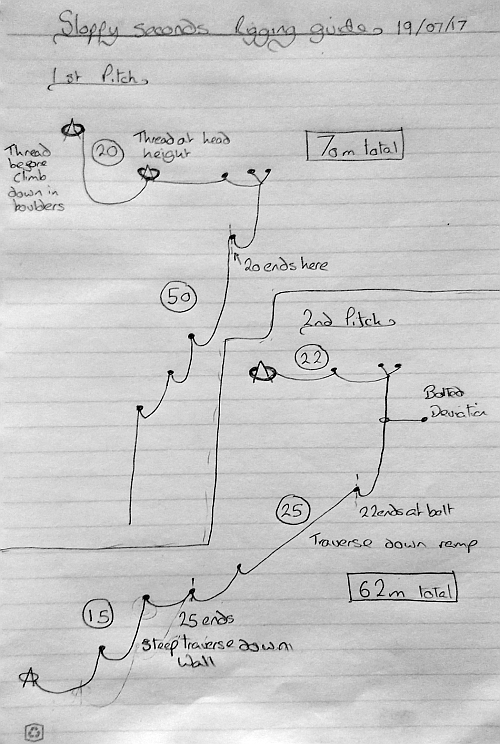 Sloppy seconds Rigging guide 19/07/17
1st Pitch
Thread
before
climb
down in
boulders
20
Thread at head
height
70m total
20 ends here
50
2nd Pitch
22
Bolted
Deviation
22 ends at bolt
25
Traverse down ramp
62m total
15
25 ends
Steep traverse down
wall